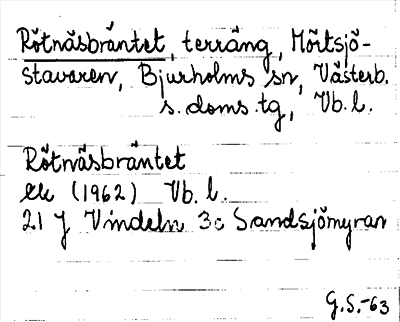 Rötnäsbräntet, terräng, Mörtsjö-
stavaren, Bjurholms sn, Västerb.
s. doms. tg, Vb. l.
Rötnäsbräntet
ek (1962) Vb. l.
21 J Vindeln 3c Sandsjömyran
G.S.-63